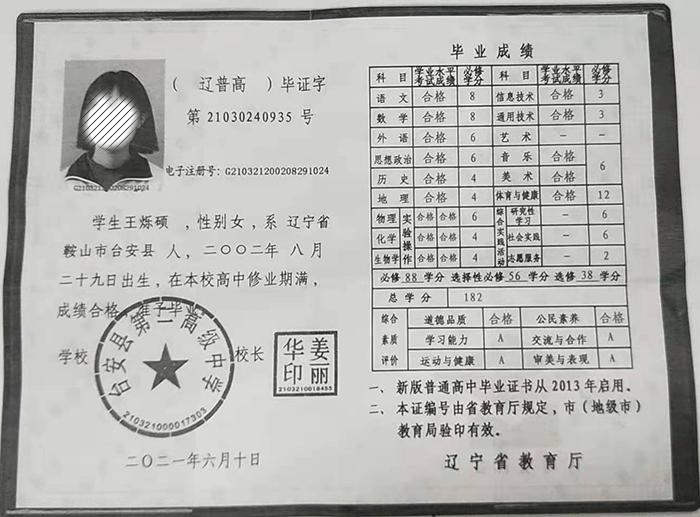 （ 辽普高 ）毕证字
第 21030240935 号
G210321200208291024
电子注册号: G210321200208291024
学生王烁硕 ，性别女，系 辽宁省
鞍山市台安县 人，二〇〇二年 八月
二十九日出生，在本校高中修业期满，
成绩合格，准予毕业。
学校
台安县第一高级中学
210321000017303
校长
姜丽华印
2103210018455
二〇二一年六月十日
毕业成绩
科目 学业水平考试成绩 必修学分 科目 学业水平考试成绩 必修学分
语文 合格 8 信息技术 合格 3
数学 合格 8 通用技术 合格 3
外语 合格 6 艺术 — —
思想政治 合格 6 音乐 合格 6
历史 合格 4 美术 合格
地理 合格 4 体育与健康 合格 12
物理 实验操作 合格 合格 6 综合实践活动 研究性学习 — 6
化学 合格 合格 4 社会实践 — 6
生物学 合格 合格 4 志愿服务 — 2
必修 88 学分 选择性必修 56 学分 选修 38 学分
总学分 182
综合素质评价 道德品质 合格 公民素养 合格
学习能力 A 交流与合作 A
运动与健康 A 审美与表现 A
一、新版普通高中毕业证书从 2013 年启用。
二、本证编号由省教育厅规定，市（地级市）
教育局验印有效。
辽宁省教育厅